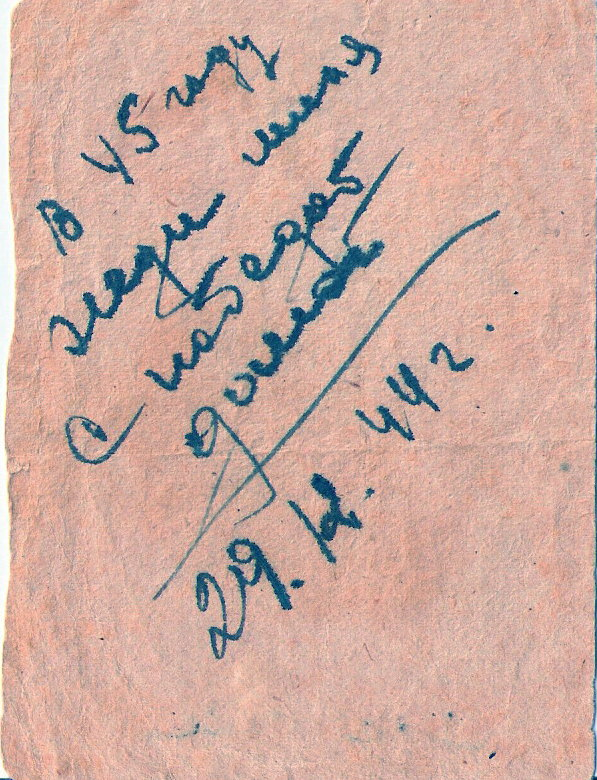 В 45 году
жди меня
с победой
домой
29.12.44 г.